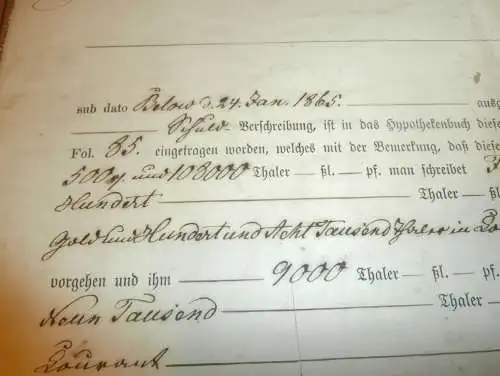 sub dato Below d. 24. Jan. 1865. ausg
Schuld-Verschreibung, ist in das Hypothekenbuch diese
Fol. 35. eingetragen worden, welches mit der Bemerkung, daß diese
500 und 108000 Thaler — ßl. — pf. man schreibet
Hundert Thaler — ßl
Gold und Hundert und Acht Tausend Thaler in Co
vorgehen und ihm — 9000 Thaler — ßl. — pf.
Neun Tausend Thaler —
Courant —